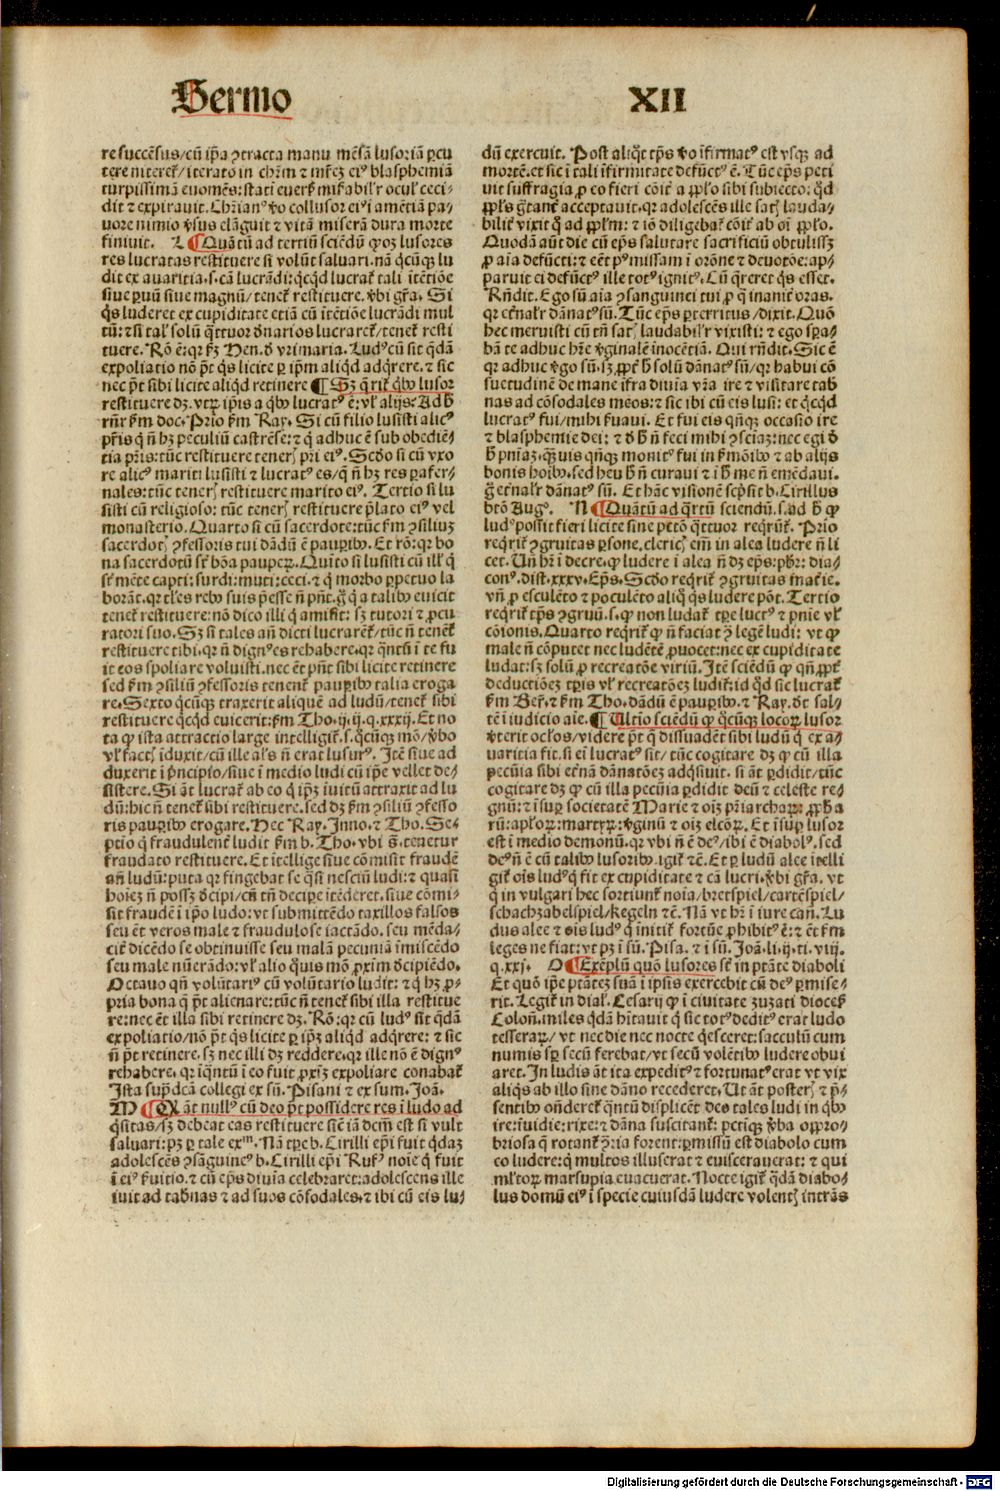 Sermo
XII
re succēsus/cū ip̄a ꝯtracta manu mēsā lusoriā ꝑcu
tere niteret̉/iterato in chr̄m ⁊ mr̄eꝫ eiꝰ blasphemiā
turpissimā euomēs: stati euers̉ mirabil̉r ocul̉ ceci⸗
dit ⁊ expirauit. Chr̄ianꝰ v̄o collusor eiꝰ i amētiā pa⸗
uore nimio v̉sus elāguit ⁊ vitā miserā dura morte
finiuit. L ¶ Quātū ad tertiū sciēdū ꝙ oēs lusores
res lucratas restituere si volūt saluari. nā q̄cūqꝫ lu
dit ex auaritia. s. cā lucrādi: q̇cq̇d lucrat̉ tali ītētiōe
siue ꝑuū siue magnū/tenet̉ restituere. v̄bi gr̄a. Si
q̇s luderet ex cupiditate etiā cū ītētiōe lucrādi mul
tū: ⁊ si tal̉ solū q̄ttuor d̄narios lucraret̉/tenet̉ resti
tuere. Rō ē: qꝛ ẜm Hen. d̄ vrimaria. Ludꝰ cū sit q̄dā
expoliatio nō p̄t q̇s licite ꝑ ip̄m aliq̇d adq̇rere. ⁊ sic
nec p̄t sibi licite aliq̇d retinere ¶ Sꝫ q̄rit̉ q̇bꝰ lusor
restituere dꝫ. vtꝝ ip̄is a q̇bꝰ lucratꝰ ē: vl̉ alijs: Ad h̄
rn̄r ẜm doc. Prīo ẜm Ray. Si cū filio lusisti alicꝰ
pr̄is q̇ n̄ hꝫ peculiū castrēse: ⁊ q̇ adhuc ē sub obediē⸗
tia pr̄is: tūc restituere teneꝛꝭ pr̄i eiꝰ. Scd̄o si cū vxo
re alicꝰ mariti lusisti ⁊ lucratꝰ es/q̄ n̄ hꝫ res parafer⸗
nales: tūc teneꝛꝭ restituere marito eiꝰ. Tertio si lu
sisti cū religioso: tūc teneꝛꝭ restituere p̄lato eiꝰ vel
monasterio. Quarto si cū sacerdote: tūc ẜm ꝯsiliū
sacerdotꝭ ꝯfessoris tui dādū ē pauꝑibꝰ. Et rō: qꝛ bo
na sacerdotū st̄ bōa pauꝑꝝ. Quīto si lusisti cū ill̉ q̇
st̄ mēte capti: surdi: muti: ceci. ⁊ q̇ morbo ꝑpetuo la
borāt. qꝛ tl̄es rebꝰ suis p̄esse n̄ pn̄t. g̊ q̇ a talibꝰ euicit
tenet̉ restituere: nō dico illi q̇ amisit: sꝫ tutori ⁊ ꝓcu
ratori suo. Sꝫ si tales an̄ dicti lucrarēt̉/tūc n̄ tenet̉
restituere tibi. qꝛ n̄ dignꝰ es rehabere. qꝛ q̄ntū i te fu
it eos spoliare voluisti. nec ēt pn̄t sibi licite retinere
sed ẜm ꝯsiliū ꝯfessoris tenent̉ pauꝑibꝰ talia eroga
re. Sexto q̇cūqꝫ traxerit aliquē ad ludū/tenet̉ sibi
restituere q̇cq̇d euicerit: ẜm Tho. ij. ij. q. xxxij. Et no
ta ꝙ ista attractio large intelligit̉. s. q̇cūqꝫ mō/v̄bo
vl̉ factꝭ īduxit/cū ille al̉s n̄ erat lusurꝰ. Itē siue ad
duxerit ī p̄ncipio/siue ī medio ludi cū ip̄e vellet de⸗
sistere. Si āt lucrat̉ ab eo q̇ ip̄ꝫ īuitū attraxit ad lu
dū: hic n̄ tenet̉ sibi restituere. sed dꝫ ẜm ꝯsiliū ꝯfesso
ris pauꝑibꝰ erogare. Hec Ray. Inno. ⁊ Tho. Se⸗
ptio q̇ fraudulent̉ ludit ẜm b. Tho. vbi s̄. tenetur
fraudato restituere. Et ītellige siue cōmisit fraudē
an̄ ludū: puta qꝛ fingebat se q̄si nesciū ludi: ⁊ quasi
hoīeꝫ n̄ possꝫ d̄cipi/cū tn̄ decipe ītēderet. siue cōmi⸗
sit fraudē ī ip̄o ludo: vt submittēdo taxillos falsos
seu ēt veros male ⁊ fraudulose iactādo. seu mēda⸗
cit̉ dicēdo se obtinuisse seu malā pecuniā īmiscēdo
seu male nūerādo: vl̉ alio q̇uis mō ꝓxim̄ d̄cipiēdo.
Octauo qn̄ volūtariꝰ cū volūtario ludit: ⁊ q̇ hꝫ ꝓ⸗
pria bona q̇ p̄t alienare: tūc n̄ tenet̉ sibi illa restitue
re: nec ēt illa sibi retinere dꝫ. Rō: qꝛ cū ludꝰ sit q̄dā
expoliatio/nō p̄t q̇s licite ꝑ ip̄ꝫ aliq̇d adq̇rere: ⁊ sic
n̄ p̄t retinere. sꝫ nec illi dꝫ reddere. qꝛ ille nō ē dignꝰ
rehabere. qꝛ iq̄ntū i eo fuit ꝓxīꝫ expoliare conabat̉
Ista sup̄dcā collegi ex sū. Pisani ⁊ ex sum. Joā.
M ¶ Qꝛ āt nullꝰ cū deo p̄t possidere res ī ludo ad
q̇sitas/sꝫ debeat eas restituere sic̄ iā dcm̄ est si vult
saluari: pꝫ ꝑ tale exᵐ. Nā tꝑe b. Cirilli ep̄i fuit q̇daꝫ
adolescēs ꝯsāguineꝰ b. Cirilli ep̄i Rufꝰ noīe q̇ fuit
ī eiꝰ ẜuitio. ⁊ cū ep̄s diuīa celebraret: adolescens ille
iuit ad tab̉nas ⁊ ad suos cōsodales. ⁊ ibi cū eis lu⸗
dū exercuit. Post aliq̄t tp̄s v̄o īfirmatꝰ est vsqꝫ ad
mortē. et sic ī tali īfirmitate defūctꝰ ē. Tūc ep̄s peti
uit suffragia ꝓ eo fieri cōit̉ a pp̄lo sibi subiecto: q̇d
pp̄l̉s g̊tant̉ acceptauit. qꝛ adolescēs ille satꝭ lauda⸗
bilit̉ vixit q̄ ad pp̄lm̄: ⁊ iō diligebat̉ cōit̉ ab oī pp̄lo.
Quodā aūt die cū ep̄s salutare sacrificiū obtulissꝫ
ꝓ aīa defūcti: ⁊ cēt ꝑ missam ī orōne ⁊ deuotōe: ap⸗
paruit ei defūctꝰ ille totꝰ ignitꝰ. Cū q̄reret q̇s esset.
Rn̄dit. Ego sū aīa ꝯsanguinei tui ꝓ q̇ inanit̉ oras.
qꝛ et̉nal̉r dānatꝰ sū. Tūc ep̄s ꝑterritus/dixit. Quō
hec meruisti cū tn̄ satꝭ laudabil̉r vixisti: ⁊ ego spa⸗
bā te adhuc hr̄e v̉ginalē īnocētiā. Qui rn̄dit. Sic ē
qꝛ adhuc v̉go sū. sꝫ ꝓpt̉ h̄ solū dānatꝰ sū/qꝛ habui cō
suetudinē de mane īfra diuīa vr̄a ire ⁊ visitare tab̉
nas ad cōsodales meos: ⁊ sic ibi cū eis lusi: et q̇cq̇d
lucratꝰ fui/mihi ẜuaui. Et fui eis qn̄qꝫ occasio ire
⁊ blasphemie dei: ⁊ d̄ h̄ n̄ feci mihi ꝯsciaꝫ: nec egi d̄
h̄ pn̄iaꝫ. q̄ꝫuis qn̄qꝫ monitꝰ fui in ẜmōibꝰ ⁊ ab alijs
bonis hoībꝰ. sed heu h̄ n̄ curaui ⁊ ī h̄ me n̄ emēdaui.
g̊ et̉nal̉r dānatꝰ sū. Et hāc visionē scp̄sit b. Cirillus
btō Augꝰ. N ¶ Quātū ad q̄rtū sciendū. s. ad h̄ ꝙ
ludꝰ possit fieri licite sine pctō q̄ttuor req̇rūt̉. Prīo
req̇rit̉ ꝯgruitas ꝑsone. clericꝭ em̄ in alea ludere n̄ li
cet. Vn̄ hr̄ ī decre. ꝙ ludere ī alea n̄ dꝫ ep̄s: pb̄r: dia⸗
conꝰ. dist. xxxv. Ep̄s. Scd̄o req̇rit̉ ꝯgruitas mat̉ie.
vn̄ ꝓ esculēto ⁊ poculēto aliq̇ q̇s ludere pōt. Tertio
req̇rit̉ tp̄s ꝯgruū. s. ꝙ non ludat̉ tꝑe luctꝰ ⁊ pn̄ie vl̉
cōionis. Quarto req̇rit̉ ꝙ n̄ faciat ꝯͣ legē ludi: vt ꝙ
male n̄ cōputet nec ludētē ꝓuocet: nec ex cupiditate
ludat: sꝫ solū ꝓ recreatōe viriū. Itē sciēdū ꝙ qn̄ ꝓpt̉
deductiōeꝫ tꝑis vl̉ recreatōeꝫ ludit̉: id q̇d sic lucrat̉
ẜm Ber̄. ⁊ ẜm Tho. dādū ē pauꝑibꝰ. ⁊ Ray. d̄t sal⸗
tē ī iudicio aīe. ¶ Ultīo sciēdū ꝙ q̇cūqꝫ locoꝝ lusor
v̉terit oclos/videre p̄t q̇ dissuadēt sibi ludū q̇ ex a⸗
uaritia fit. si ei lucratꝰ sit/tūc cogitare dꝫ ꝙ cū illa
pecūia sibi et̉nā dānatōeꝫ adq̇siuit. si āt ꝑdidit/tūc
cogitare dꝫ ꝙ cū illa pecūia ꝑdidit deū ⁊ celeste re⸗
gnū: ⁊ īsuꝑ societatē Marie ⁊ oīꝫ pr̄iarchaꝝ: ꝓpha
rū: aplōꝝ: martyꝝ: v̉ginū ⁊ oīꝫ elcōꝝ. Et īsuꝑ lusor
est ī medio demonū. qꝛ vbi n̄ ē deꝰ/ibi ē diabolꝰ. sed
deꝰ n̄ ē cū talibꝰ lusoribꝰ. igit̉ ⁊c̄. Et ꝑ ludū alee ītelli
git̉ oīs ludꝰ q̇ fit ex cupiditate ⁊ cā lucri. v̄bi gr̄a. vt
q̇ in vulgari hec sortiunt̉ noīa/bretspiel/cartēspiel/
schachzabelspiel/kegeln ⁊c̄. Nā vt hr̄ ī iure can̄. Lu
dus alee ⁊ oīs ludꝰ q̇ īnitit̉ fortūe ꝓhibitꝰ ē: ⁊ ēt ẜm
leges ne fiat: vt pꝫ ī sū. Pisa. ⁊ ī sū. Joā. li. ij. ti. viij.
q. xxj. O ¶ Exēplū quō lusores st̄ in ptāte diaboli
Et quō ip̄e ptāteꝫ suā ī ipsis exercebit cū deꝰ ꝑmise⸗
rit. Legit̉ in dial̉. Cesarij ꝙ ī ciuitate zuzati dioces̉
Colon̄. miles q̇dā hītauit q̇ sic totꝰ deditꝰ erat ludo
tesseraꝝ/ vt nec die nec nocte q̇esceret: sacculū cum
numis sꝑ secū ferebat/vt secū volētibꝰ ludere obui
aret. In ludis āt ita expeditꝰ ⁊ fortunatꝰ erat vt vix
aliq̇s ab illo sine dāno recederet. Ut āt posterꝭ ⁊ p̄⸗
sentibꝰ on̄deret̉ q̄ntū displicēt deo tales ludi in q̇bꝰ
ire: īuidie: rixe: ⁊ dāna suscitant̉: pctīqꝫ v̄ba oppro⸗
briosa q̄ rotant̉ ꝯͣria forent: ꝑmissū est diabolo cum
eo ludere: q̇ multos illuserat ⁊ euiscerauerat: ⁊ qui
ml̉toꝝ marsupia euacuerat. Nocte igit̉ q̄dā diabo⸗
lus domū eiꝰ ī specie cuiusdā ludere volentꝭ intrās
Digitalisierung gefördert durch die Deutsche Forschungsgemeinschaft - DFG